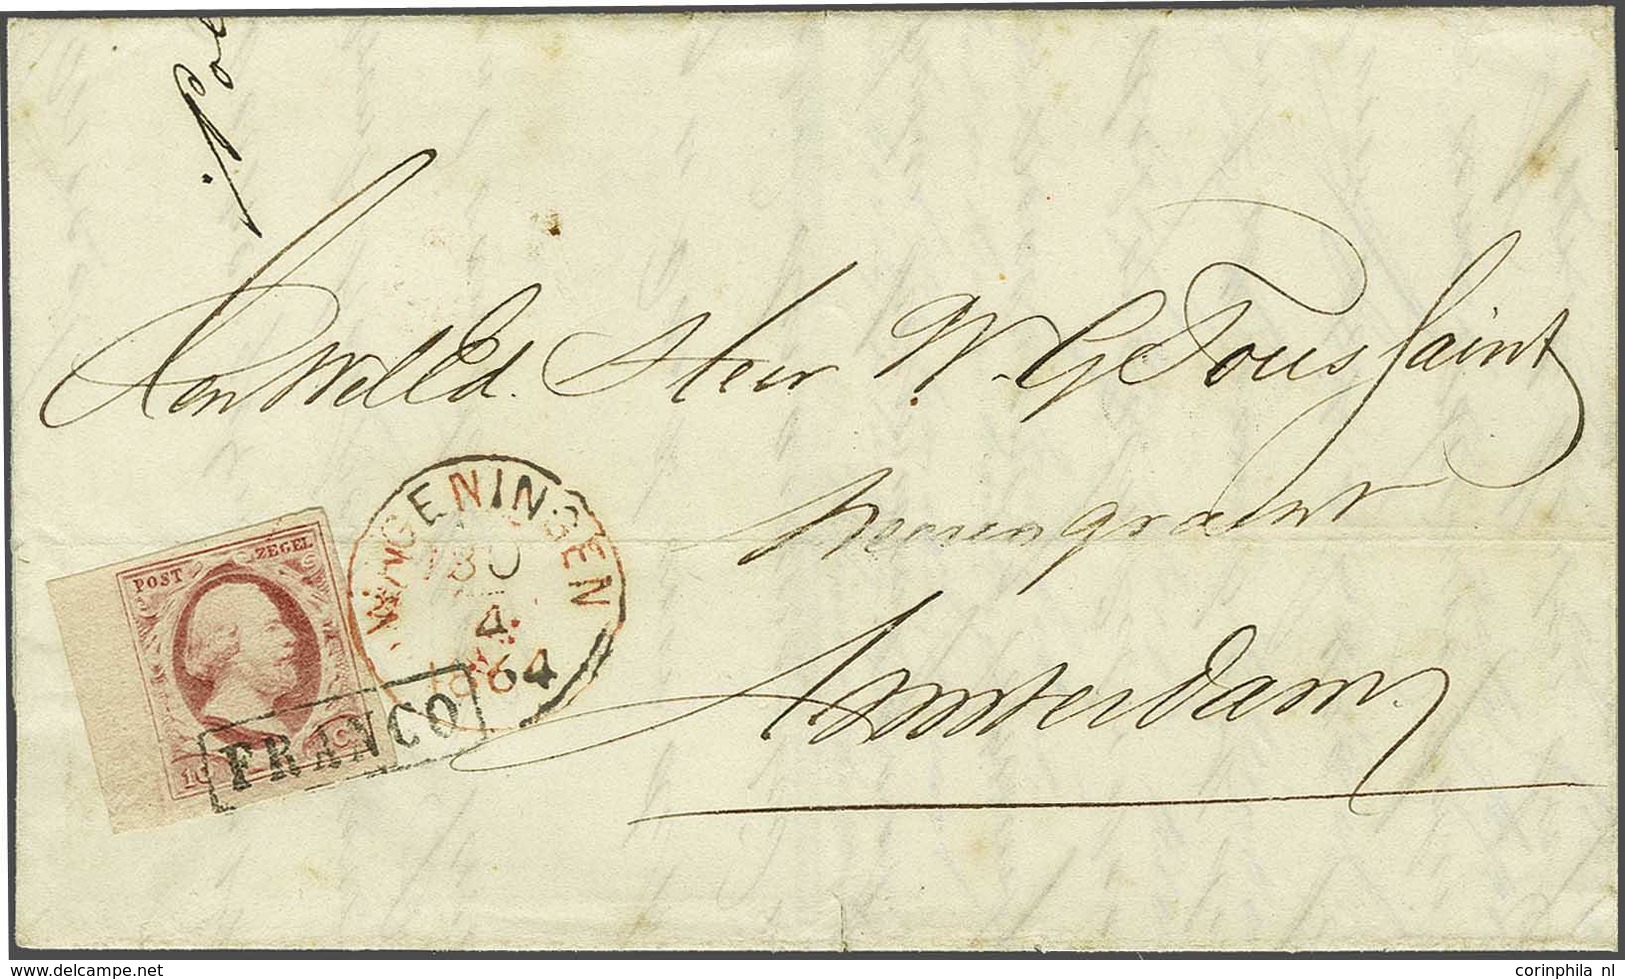 Aan WelEd. Heer W. G. Toussaint
Amsterdam
WAGENINGEN
30
4
1864
POST
ZEGEL
FRANCO
www.delcampe.net
corinphila nl